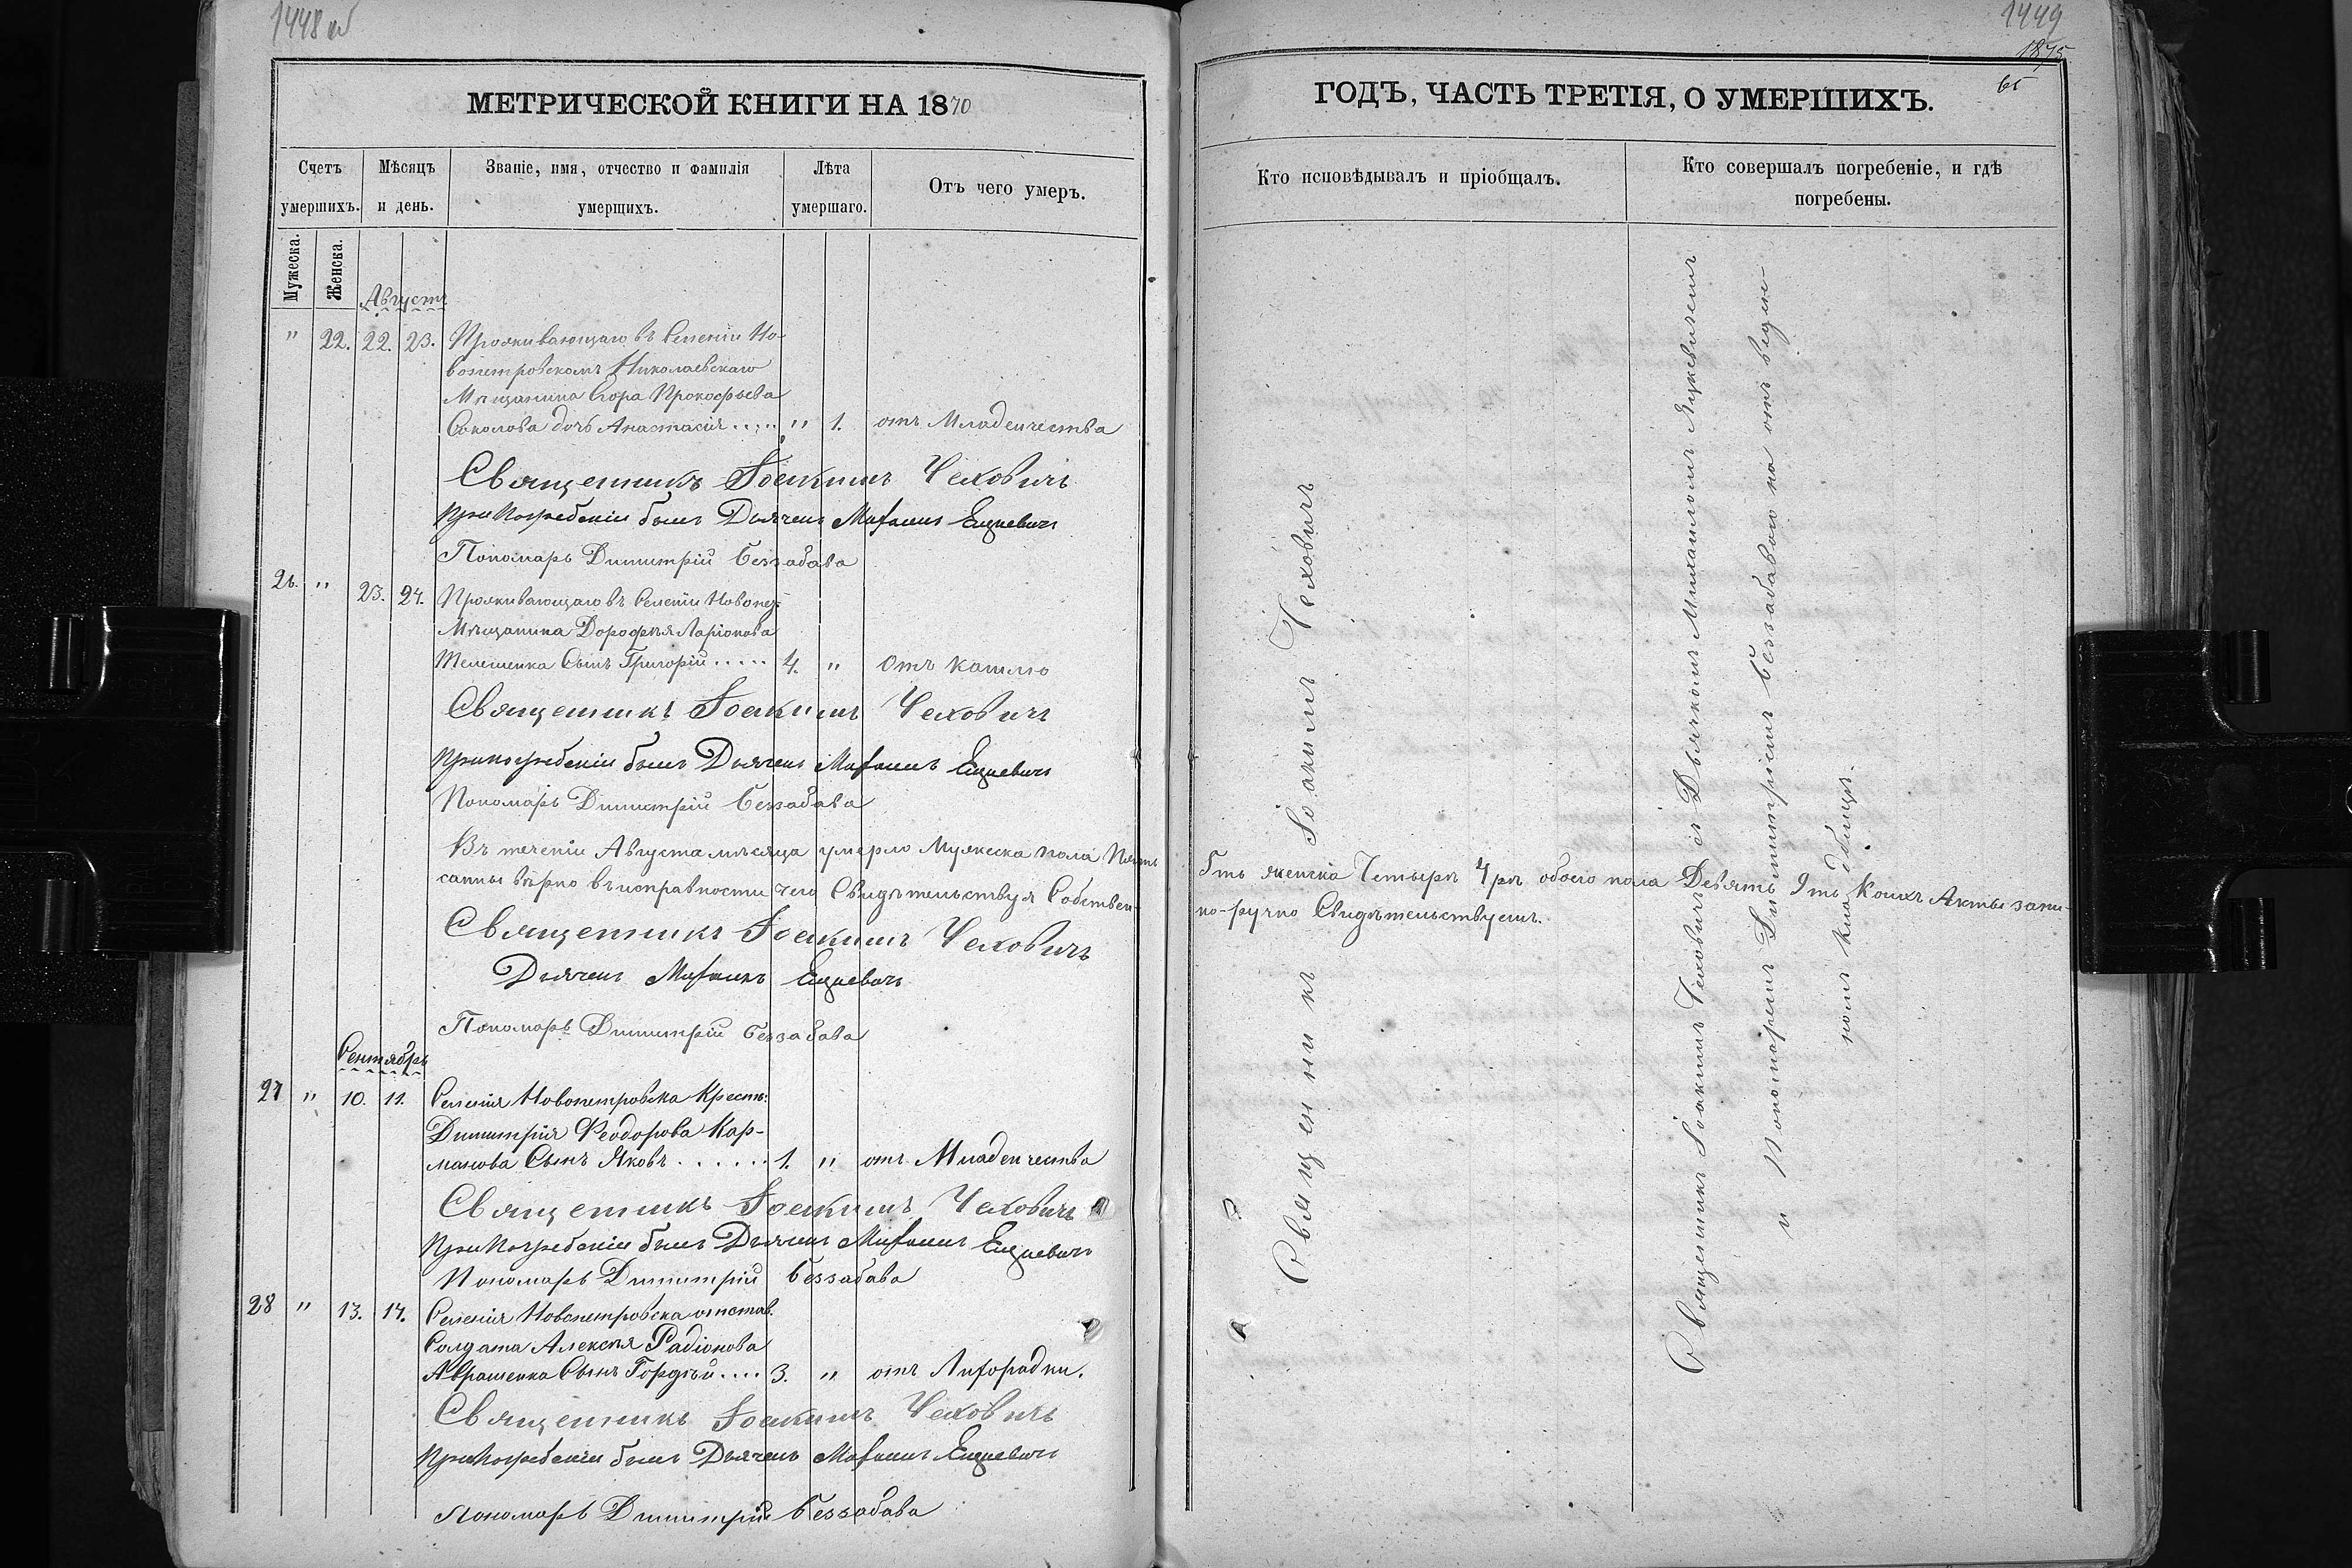 1448 об
МЕТРИЧЕСКОЙ КНИГИ НА 1870
Счетъ умершихъ.
Мѣсяцъ и день.
Званіе, имя, отчество и фамилія умерщихъ.
Лѣта умершаго.
Отъ чего умеръ.
Мужеска.
Женска.
Августъ
" 22. 22. 23. Проживающаго въ Селеніи Но-
вопетровскомъ Николаевскаго
Мѣщанина Егора Прокофьева
Соколова дочь Анастасія ..... " 1. отъ Младенчества
Священникъ Іоакимъ Чеховичъ
При Погребеніи былъ Дьячекъ Михаилъ Яцкевичъ
Пономарь Димитрій Беззабава
26. " 23. 24. Проживающаго въ Селеніи Новопет:
Мѣщанина Дорофѣя Ларіонова
Телешенка Сынъ Григорій ..... 4. " Отъ кашлю
Священникъ Іоакимъ Чеховичъ
При погребеніи былъ Дьячекъ Михаилъ Яцкевичъ
Пономарь Димитрій Беззабава
Въ теченіи Августа мѣсяца умерло Мужеска пола Пять
саны вѣрно въ исправности чего Свидѣтельствуя Собствен-
Священникъ Іоакимъ Чеховичъ
Дьячекъ Михаилъ Яцкевичъ
Пономарь Димитрій Беззабава
Сентябрь
27 " 10. 11. Селенія Новопетровка Крест:
Димитрія Феодорова Кар-
макова Сынъ Яковъ ...... 1. " отъ Младенчества
Священникъ Іоакимъ Чеховичъ
При Погребеніи былъ Дьячекъ Михаилъ Яцкевичъ
Пономарь Димитрій Беззабава
28 " 13. 14. Селенія Новопетровска отстав.
Солдата Алексѣя Радіонова
Аврашенка Сынъ Гордѣй .... 3. " отъ Лихорадки.
Священникъ Іоакимъ Чеховичъ
При Погребеніи былъ Дьячекъ Михаилъ Яцкевичъ
Пономарь Димитрій Беззабава
1449
1875
65
ГОДЪ, ЧАСТЬ ТРЕТІЯ, О УМЕРШИХЪ.
Кто исповѣдывалъ и пріобщалъ.
Кто совершалъ погребеніе, и гдѣ погребены.
5ть женска Четырѣ 4рѣ обоего пола Девять 9ть Коихъ Акты запи-
но-ручно Свидѣтельствуемъ.
Священникъ Іоакимъ Чеховичъ
Священникъ Іоакимъ Чеховичъ съ Дьячкомъ Михаиломъ Яцкевичемъ
и Пономаремъ Димитріемъ Беззабавою на отведен-
номъ кладбищѣ.